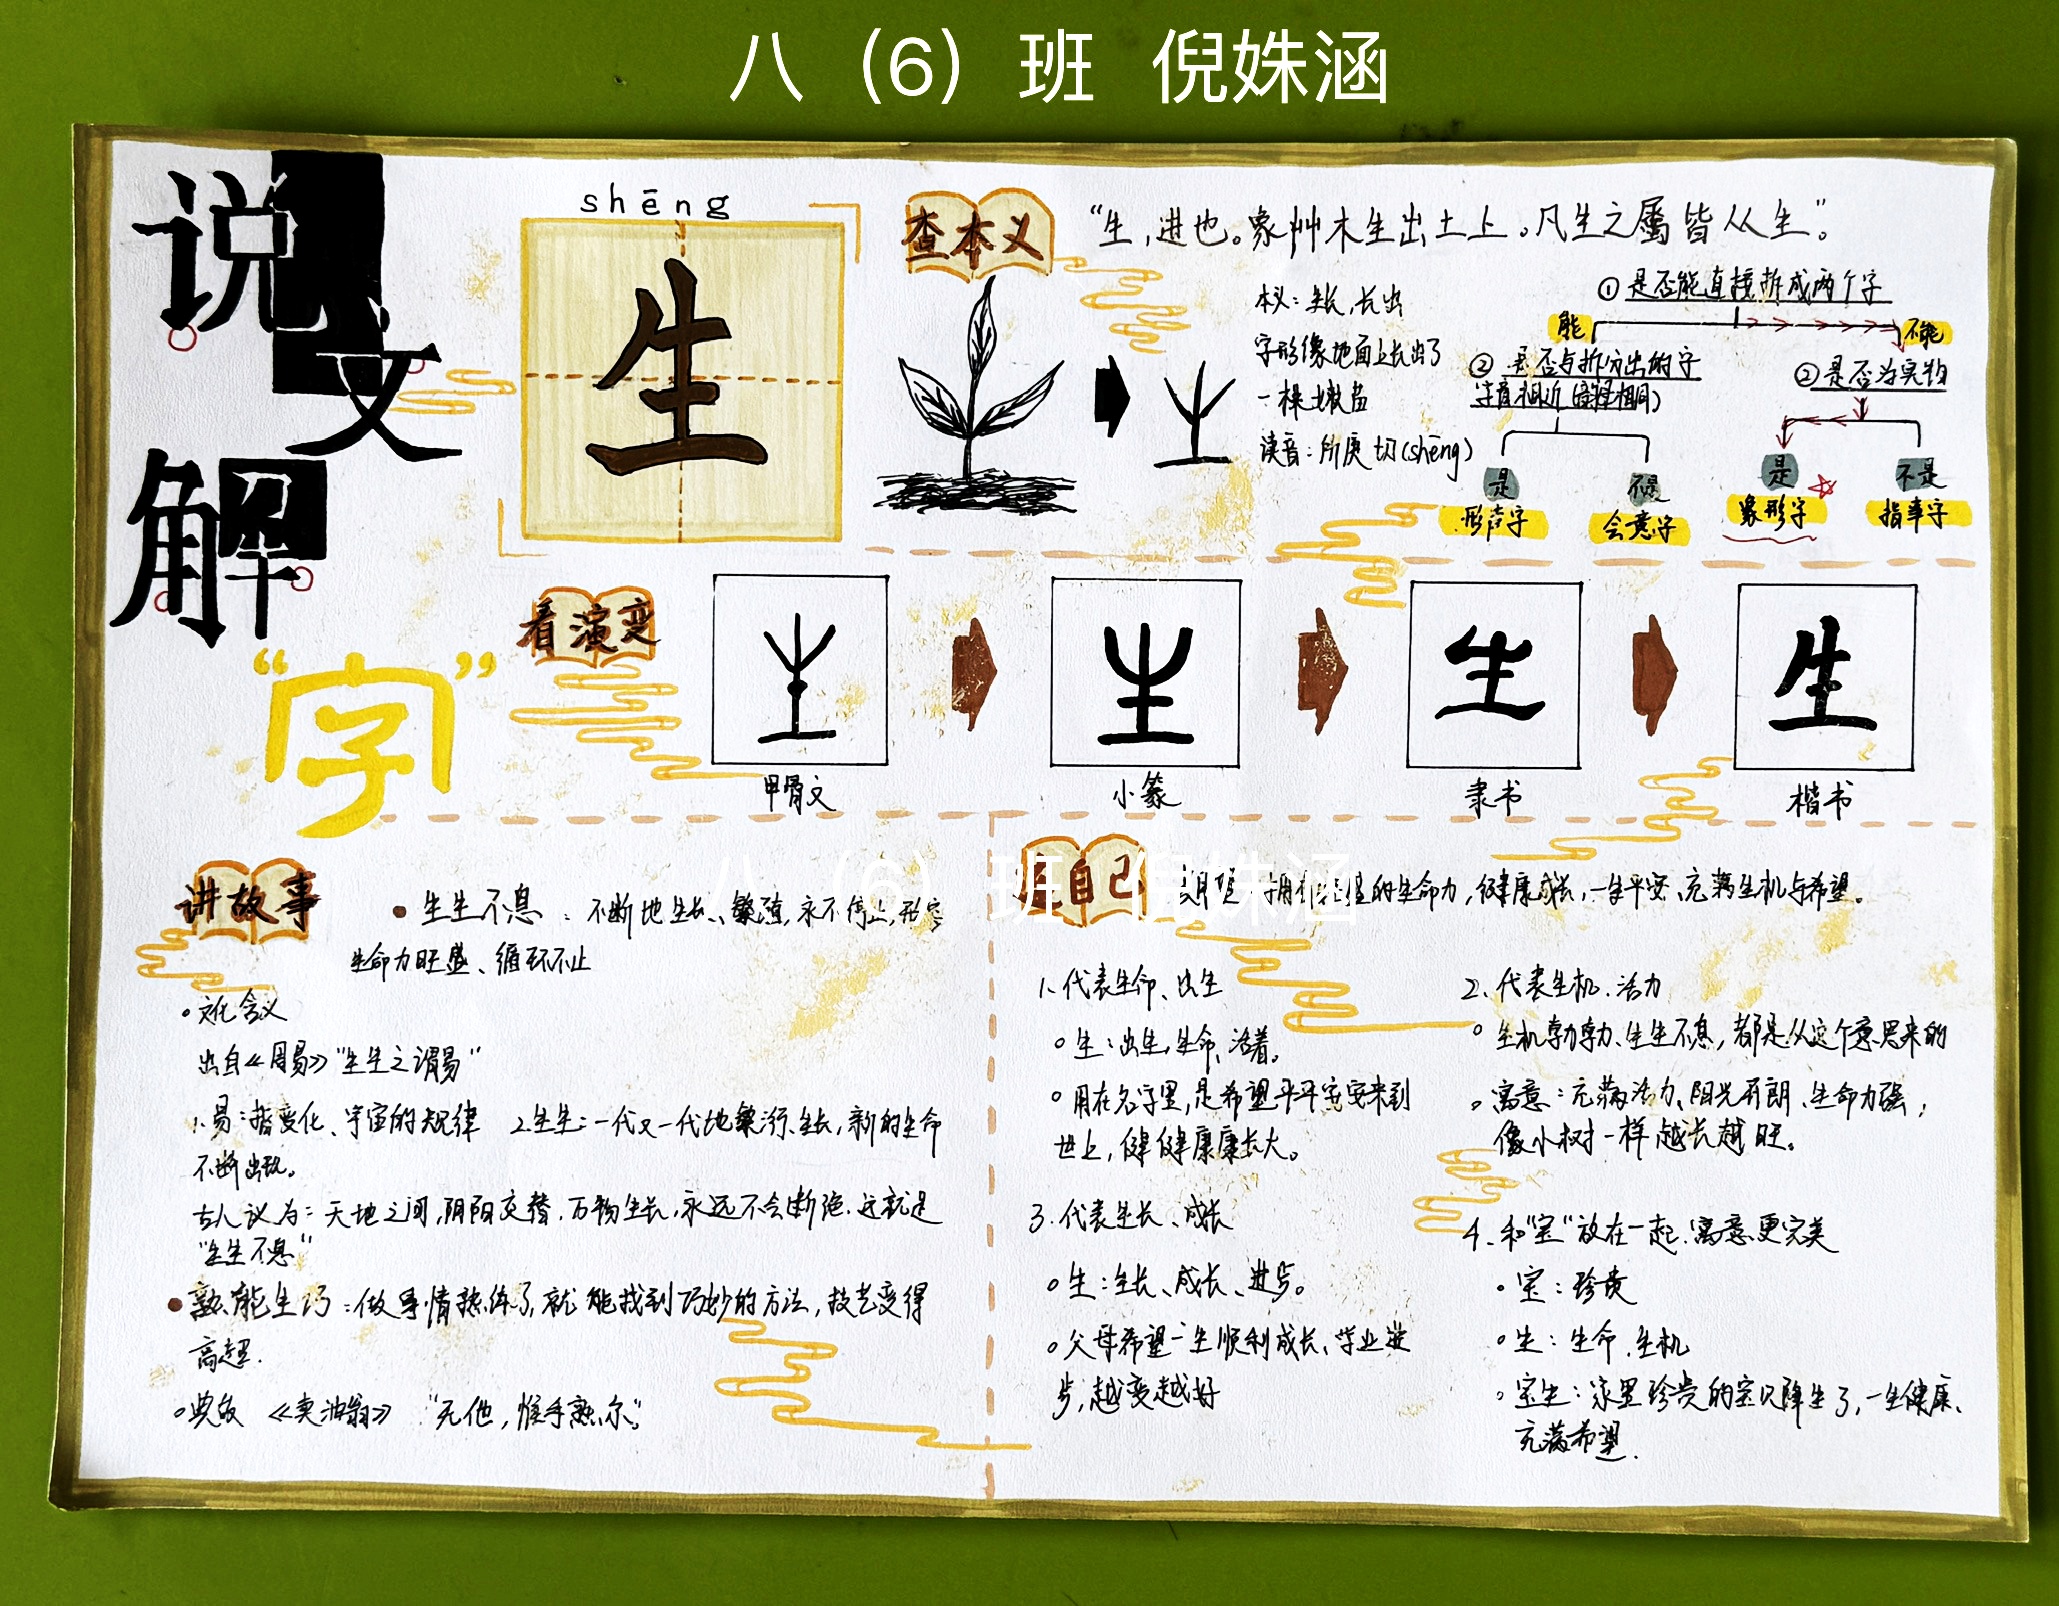 八（6）班 倪姝涵
说文解
“字”
shēng
生
查本义
“生,进也。象艸木生出土上。凡生之屬皆从生。”
本义：生长,长出
字形像地面上长出了
一棵
读音：所庚切(shēng)
①是否能直接拆成两个字
能
不能
②是否与拆分出的字
读音相近
②是否为实物
是
不是
是
不是
形声字
会意字
象形字
指事字
看演变
甲骨文
小篆
隶书
楷书
八（6）班 倪姝涵
讲故事
生生不息：不断地生长、繁殖,永不停止,形容
生命力旺盛、循环不止
文化含义
出自《周易》“生生之谓易”
1.易：指变化、宇宙的规律 2.生生：一代又一代地繁衍、生长,新的生命
不断出现。
古人认为：天地之间,阴阳交替,万物生长,永远不会断绝.这就是
“生生不息”
熟能生巧：做事情熟练了,就能找到巧妙的方法,技艺变得
高超.
典故 《卖油翁》 “无他,惟手熟尔。”
自己
期望 拥有旺盛的生命力,健康成长,一生平安、充满生机与希望。
1、代表生命、出生
生：出生,生命、活着。
用在名字里,是希望平平安安来到
世上,健健康康长大。
2、代表生机、活力
生机勃勃、生生不息,都是从这个意思来的
寓意：充满活力、阳光开朗、生命力强,
像小树一样越长越旺。
3.代表生长、成长
生：生长、成长、进步。
父母希望一生顺利成长、学业进
步,越变越好
4、和“宝”放在一起,寓意更完美
宝：珍贵
生：生命.生机
宝生：家里珍贵的宝贝降生了,一生健康、
充满希望.